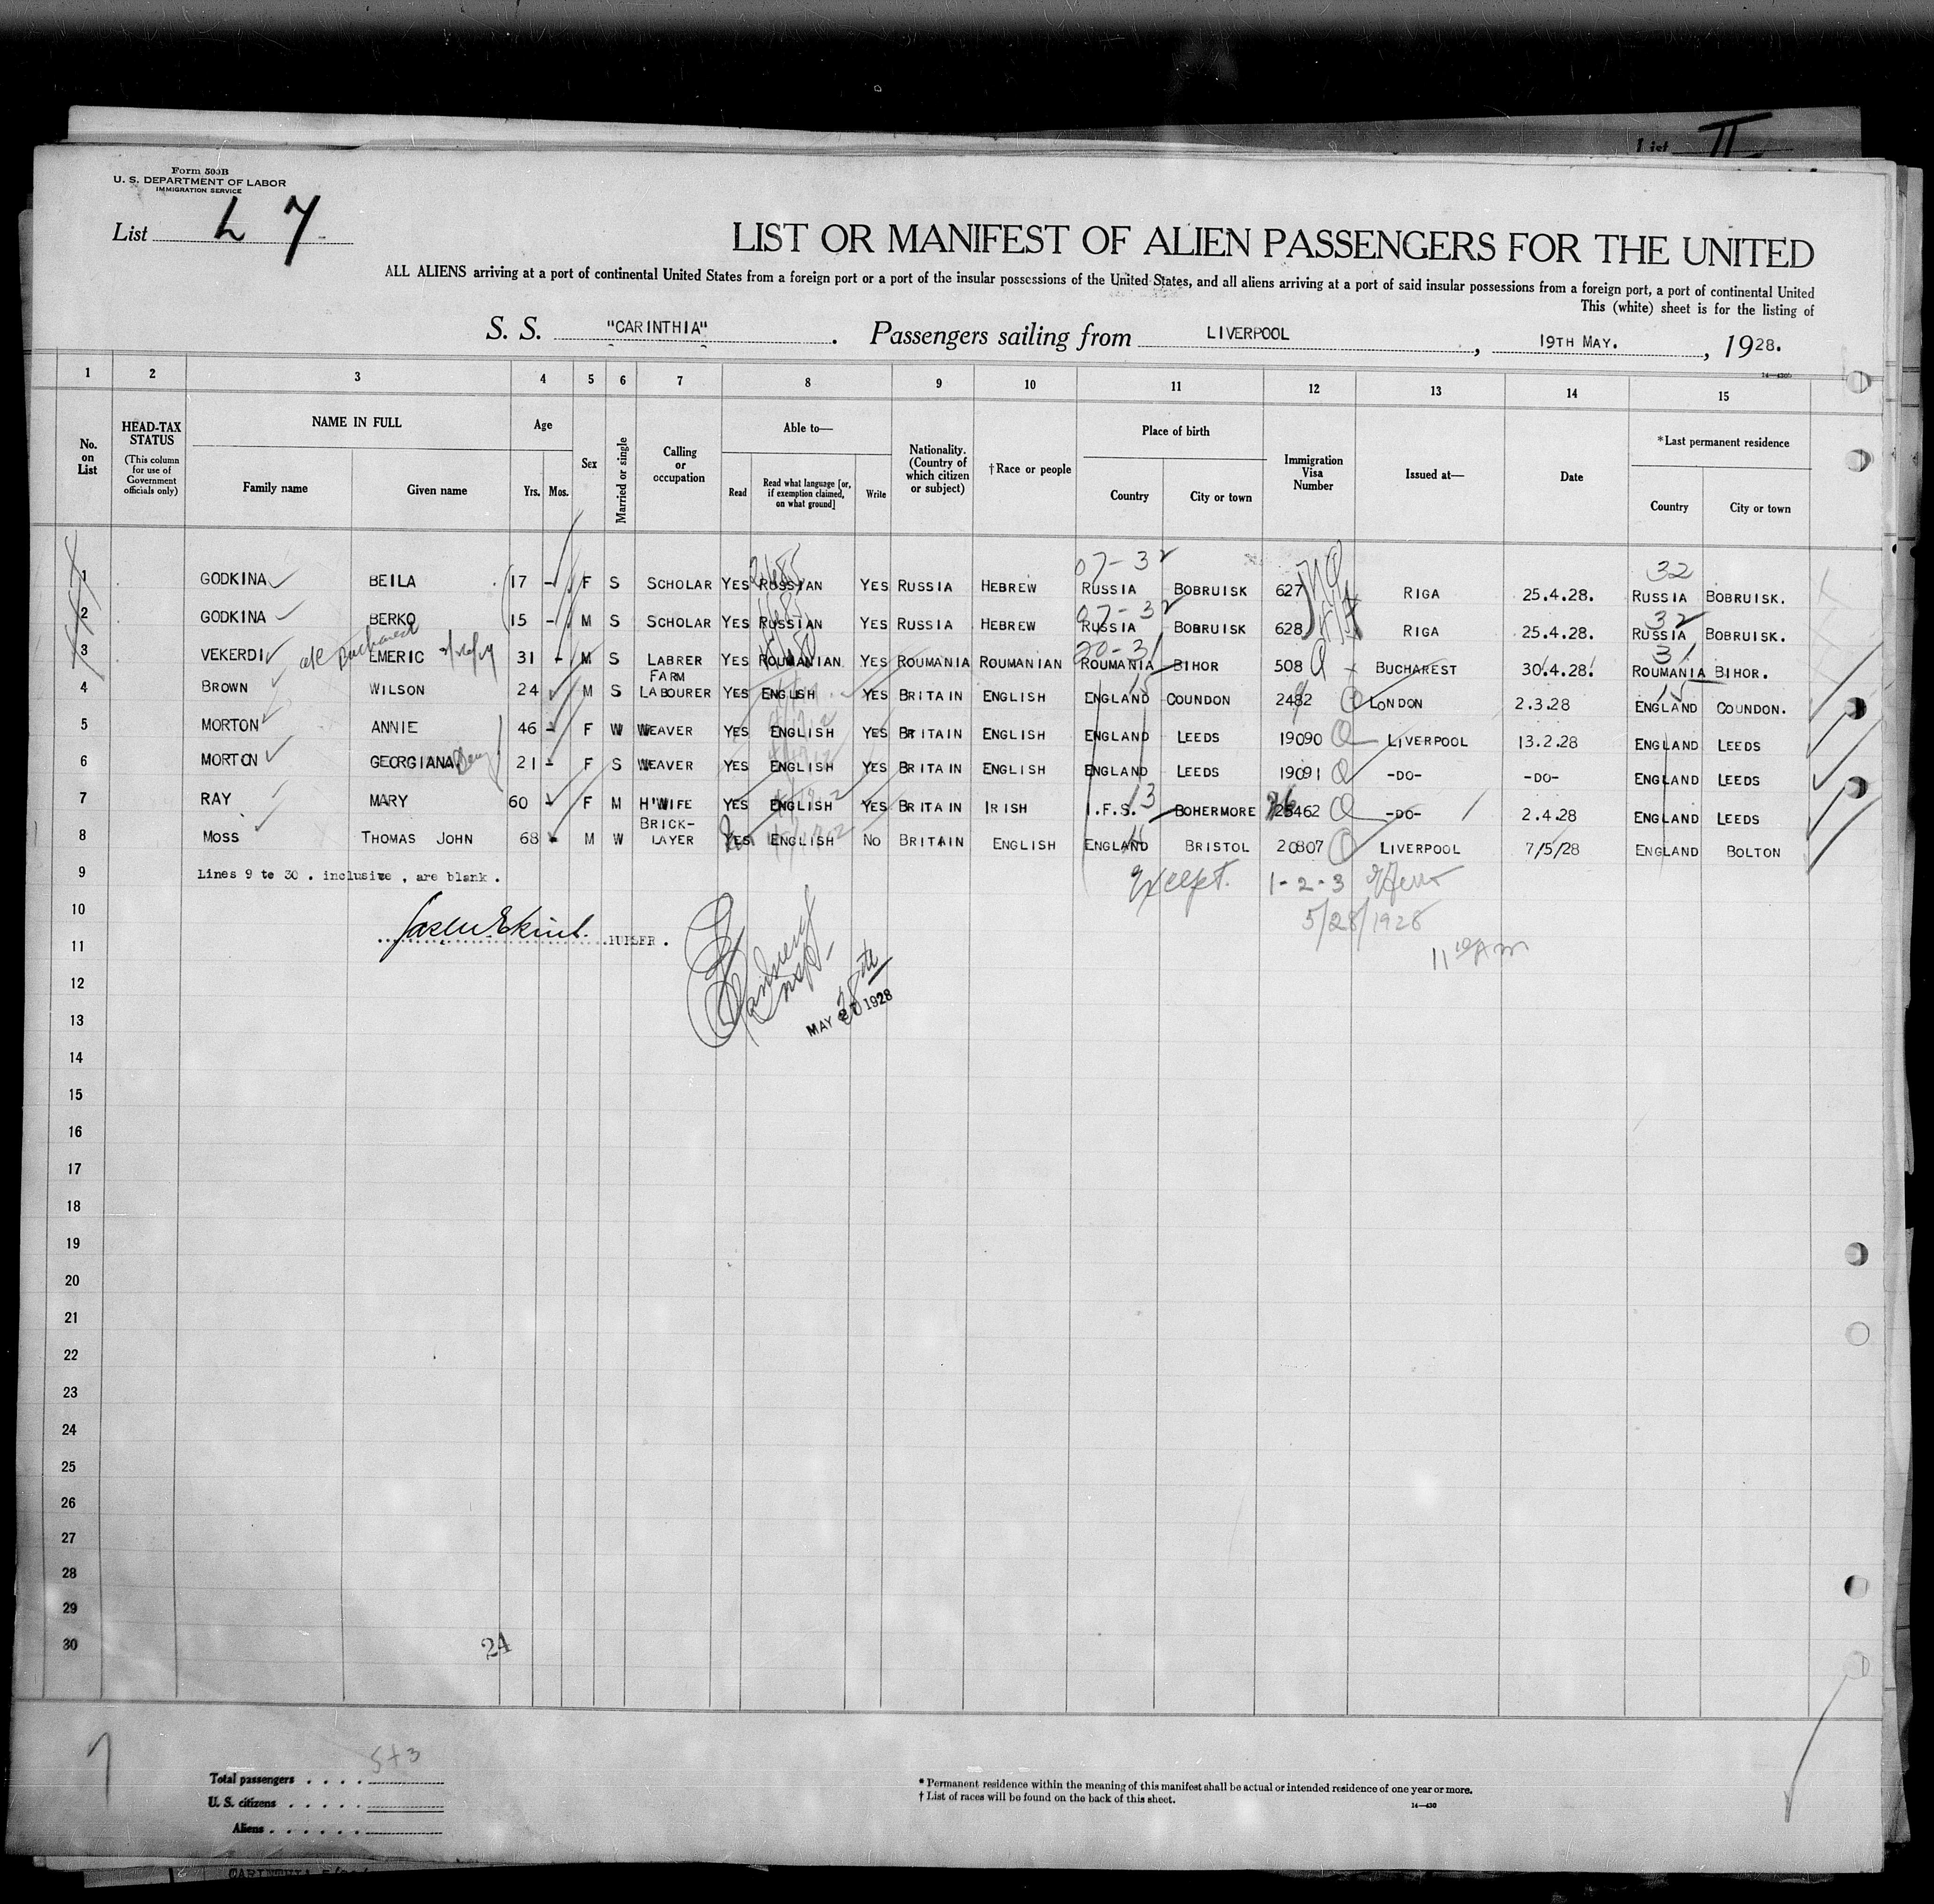 List II
Form 500B
U. S. DEPARTMENT OF LABOR
IMMIGRATION SERVICE
List L 7
LIST OR MANIFEST OF ALIEN PASSENGERS FOR THE UNITED
ALL ALIENS arriving at a port of continental United States from a foreign port or a port of the insular possessions of the United States, and all aliens arriving at a port of said insular possessions from a foreign port, a port of continental United
This (white) sheet is for the listing of
S. S. "CARINTHIA". Passengers sailing from LIVERPOOL, 19TH MAY., 1928.
1 2 3 4 5 6 7 8 9 10 11 12 13 14 15
No. on List
HEAD-TAX STATUS
(This column for use of Government officials only)
NAME IN FULL
Family name Given name
Age
Yrs. Mos.
Sex
Married or single
Calling or occupation
Able to—
Read Read what language [or, if exemption claimed, on what ground] Write
Nationality. (Country of which citizen or subject)
†Race or people
Place of birth
Country City or town
Immigration Visa Number
Issued at—
Date
*Last permanent residence
Country City or town
07-32 32
1 GODKINA BEILA 17 - F S SCHOLAR YES RUSSIAN YES RUSSIA HEBREW RUSSIA BOBRUISK 627 RIGA 25.4.28. RUSSIA BOBRUISK.
07-32 32
2 GODKINA BERKO 15 - M S SCHOLAR YES RUSSIAN YES RUSSIA HEBREW RUSSIA BOBRUISK 628 RIGA 25.4.28. RUSSIA BOBRUISK.
Bucharest 20-31 31
3 VEKERDI EMERIC 31 - M S LABRER YES ROUMANIAN YES ROUMANIA ROUMANIAN ROUMANIA BIHOR 508 BUCHAREST 30.4.28. ROUMANIA BIHOR.
4 BROWN WILSON 24 M S FARM LABOURER YES ENGLISH YES BRITAIN ENGLISH ENGLAND COUNDON 2482 LONDON 2.3.28 ENGLAND COUNDON.
5 MORTON ANNIE 46 - F W WEAVER YES ENGLISH YES BRITAIN ENGLISH ENGLAND LEEDS 19090 LIVERPOOL 13.2.28 ENGLAND LEEDS
6 MORTON GEORGIANA 21 - F S WEAVER YES ENGLISH YES BRITAIN ENGLISH ENGLAND LEEDS 19091 -DO- -DO- ENGLAND LEEDS
7 RAY MARY 60 - F M H'WIFE YES ENGLISH YES BRITAIN IRISH I.F.S. 13 BOHERMORE 25462 -DO- 2.4.28 ENGLAND LEEDS
8 MOSS THOMAS JOHN 68 - M W BRICK-LAYER YES ENGLISH NO BRITAIN ENGLISH ENGLAND BRISTOL 20807 LIVERPOOL 7/5/28 ENGLAND BOLTON
9 Lines 9 to 30 . inclusive , are blank .
Except. 1-2-3
5/28/1928
10
11
12
MAY 1928
13
14
15
16
17
18
19
20
21
22
23
24
25
26
27
28
29
30
24
5+3
Total passengers
U. S. citizens
Aliens
* Permanent residence within the meaning of this manifest shall be actual or intended residence of one year or more.
† List of races will be found on the back of this sheet.
14—430